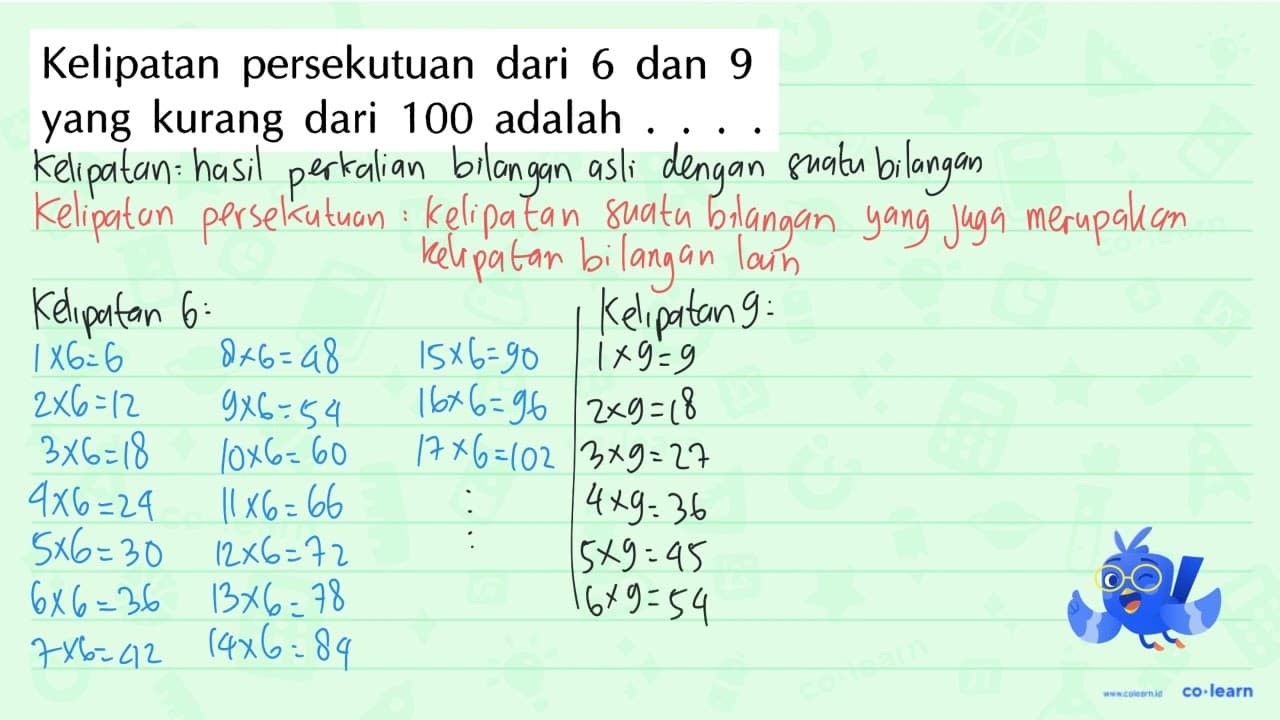 Kelipatan persekutuan dari 6 dan 9
yang kurang dari 100 adalah . . . .
Kelipatan: hasil perkalian bilangan asli dengan suatu bilangan
Kelipatan persekutuan : kelipatan suatu bilangan yang juga merupakan
kelipatan bilangan lain
Kelipatan 6:
1 x 6 = 6
2 x 6 = 12
3 x 6 = 18
4 x 6 = 24
5 x 6 = 30
6 x 6 = 36
7 x 6 = 42
8 x 6 = 48
9 x 6 = 54
10 x 6 = 60
11 x 6 = 66
12 x 6 = 72
13 x 6 = 78
14 x 6 = 84
15 x 6 = 90
16 x 6 = 96
17 x 6 = 102
:
:
Kelipatan 9:
1 x 9 = 9
2 x 9 = 18
3 x 9 = 27
4 x 9 = 36
5 x 9 = 45
6 x 9 = 54
www.colearn.id co·learn